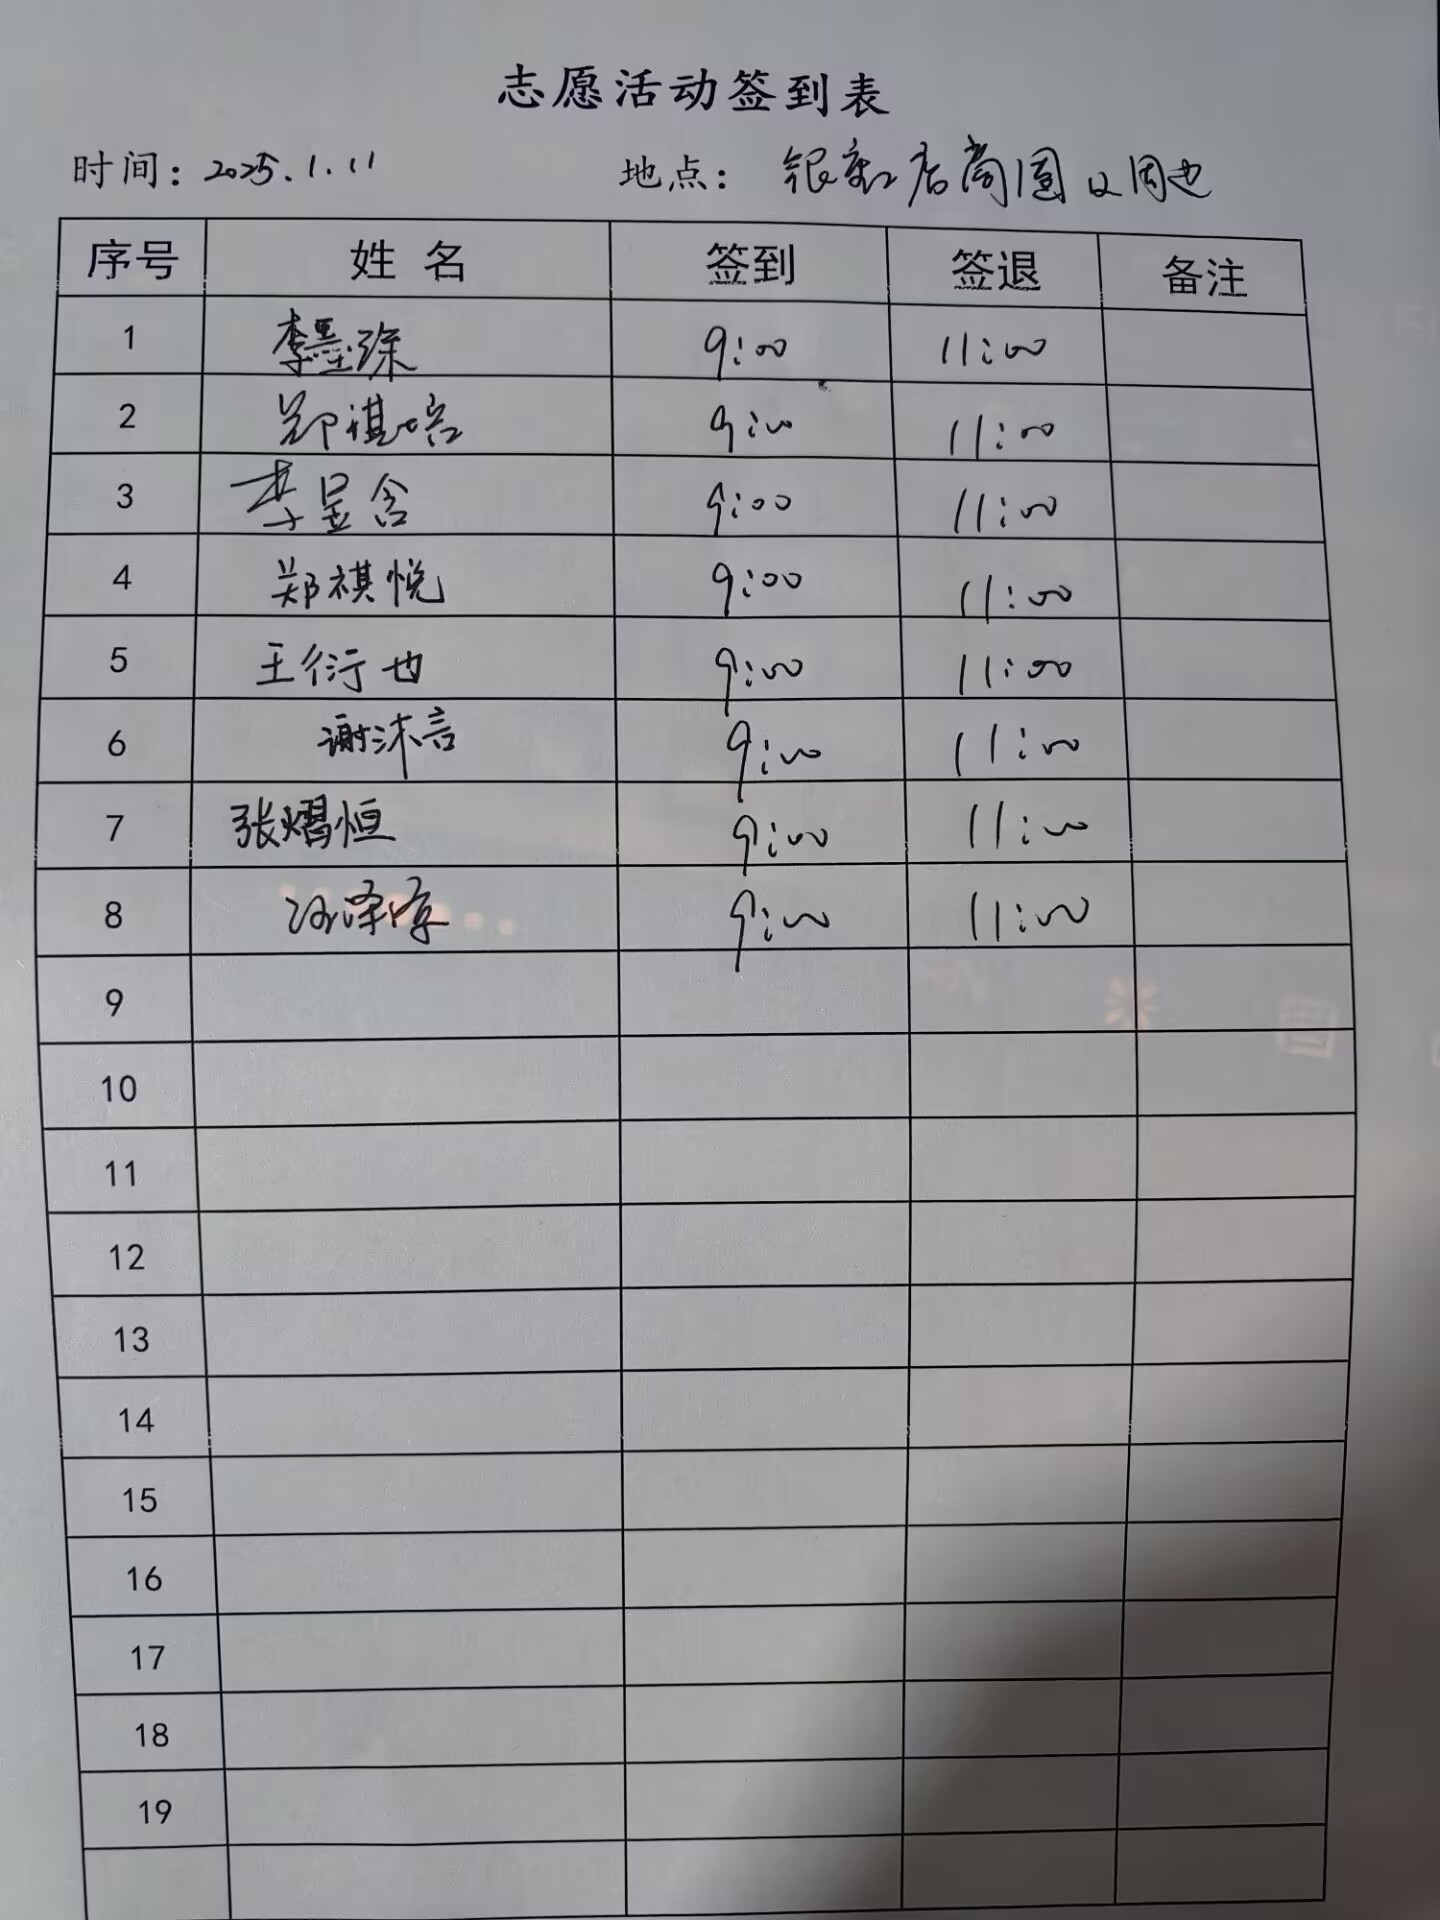 志愿活动签到表
时间：2025.1.11 地点：银泰店商圈及周边
序号 姓名 签到 签退 备注
1 李墨琛 9:00 11:00
2 郑祺培 9:00 11:00
3 李昱含 9:00 11:00
4 郑祺悦 9:00 11:00
5 王衍也 9:00 11:00
6 谢沐言 9:00 11:00
7 张熠恒 9:00 11:00
8 泽淳 9:00 11:00
9
10
11
12
13
14
15
16
17
18
19